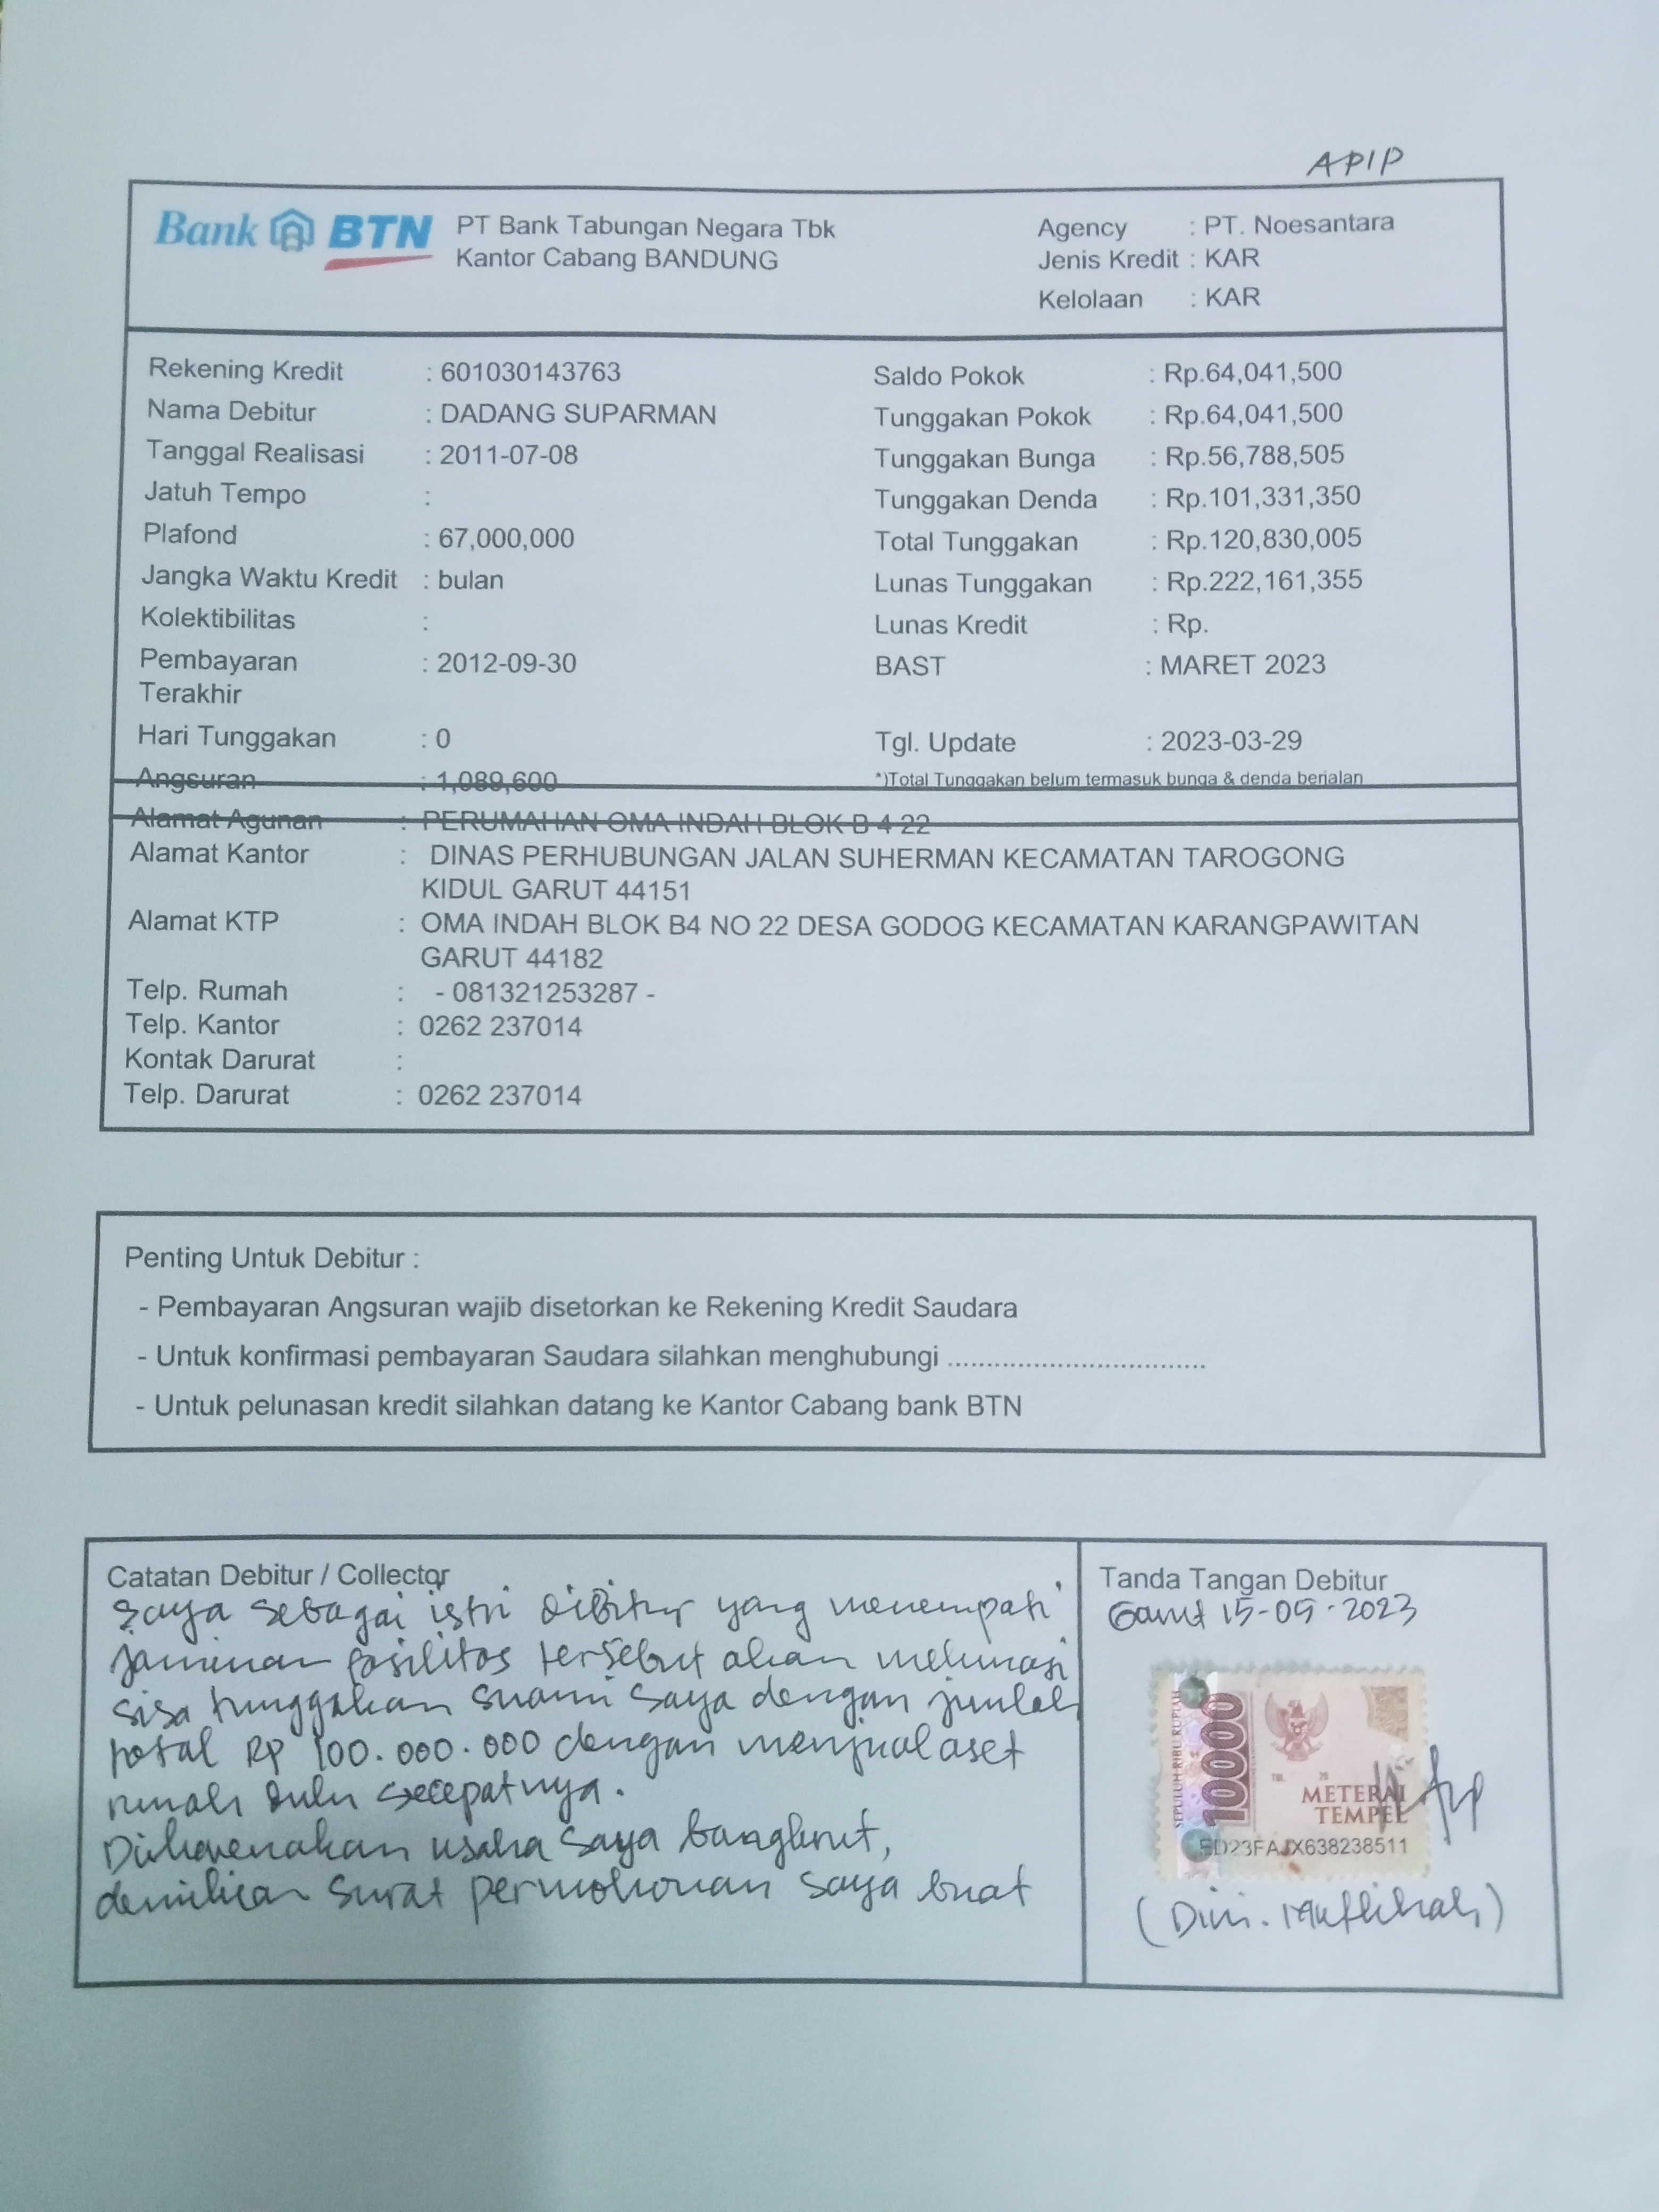 APIP
Bank BTN
PT Bank Tabungan Negara Tbk
Kantor Cabang BANDUNG
Agency : PT. Noesantara
Jenis Kredit : KAR
Kelolaan : KAR
Rekening Kredit : 601030143763
Nama Debitur : DADANG SUPARMAN
Tanggal Realisasi : 2011-07-08
Jatuh Tempo :
Plafond : 67,000,000
Jangka Waktu Kredit : bulan
Kolektibilitas :
Pembayaran : 2012-09-30
Terakhir
Hari Tunggakan : 0
Angsuran : 1,089,600
Saldo Pokok : Rp.64,041,500
Tunggakan Pokok : Rp.64,041,500
Tunggakan Bunga : Rp.56,788,505
Tunggakan Denda : Rp.101,331,350
Total Tunggakan : Rp.120,830,005
Lunas Tunggakan : Rp.222,161,355
Lunas Kredit : Rp.
BAST : MARET 2023
Tgl. Update : 2023-03-29
*)Total Tunggakan belum termasuk bunga & denda berjalan
Alamat Agunan : PERUMAHAN OMA INDAH BLOK B 4 22
Alamat Kantor : DINAS PERHUBUNGAN JALAN SUHERMAN KECAMATAN TAROGONG
KIDUL GARUT 44151
Alamat KTP : OMA INDAH BLOK B4 NO 22 DESA GODOG KECAMATAN KARANGPAWITAN
GARUT 44182
Telp. Rumah : - 081321253287 -
Telp. Kantor : 0262 237014
Kontak Darurat :
Telp. Darurat : 0262 237014
Penting Untuk Debitur :
- Pembayaran Angsuran wajib disetorkan ke Rekening Kredit Saudara
- Untuk konfirmasi pembayaran Saudara silahkan menghubungi .................................
- Untuk pelunasan kredit silahkan datang ke Kantor Cabang bank BTN
Catatan Debitur / Collector
saya sebagai istri dibitur yang menempati
jaminan fasilitas tersebut akan melunasi
sisa tunggakan suami saya dengan jumlah
total Rp 100.000.000 dengan menjual aset
rumah dulu secepatnya.
Dikarenakan usaha saya bangkrut,
demikian surat permohonan saya buat
Tanda Tangan Debitur
Garut 15-05-2023
SEPULUH RIBU RUPIAH
10000
TGL. 20
METERAI
TEMPEL
5D23FAJX638238511
(Dini. Muflihah)